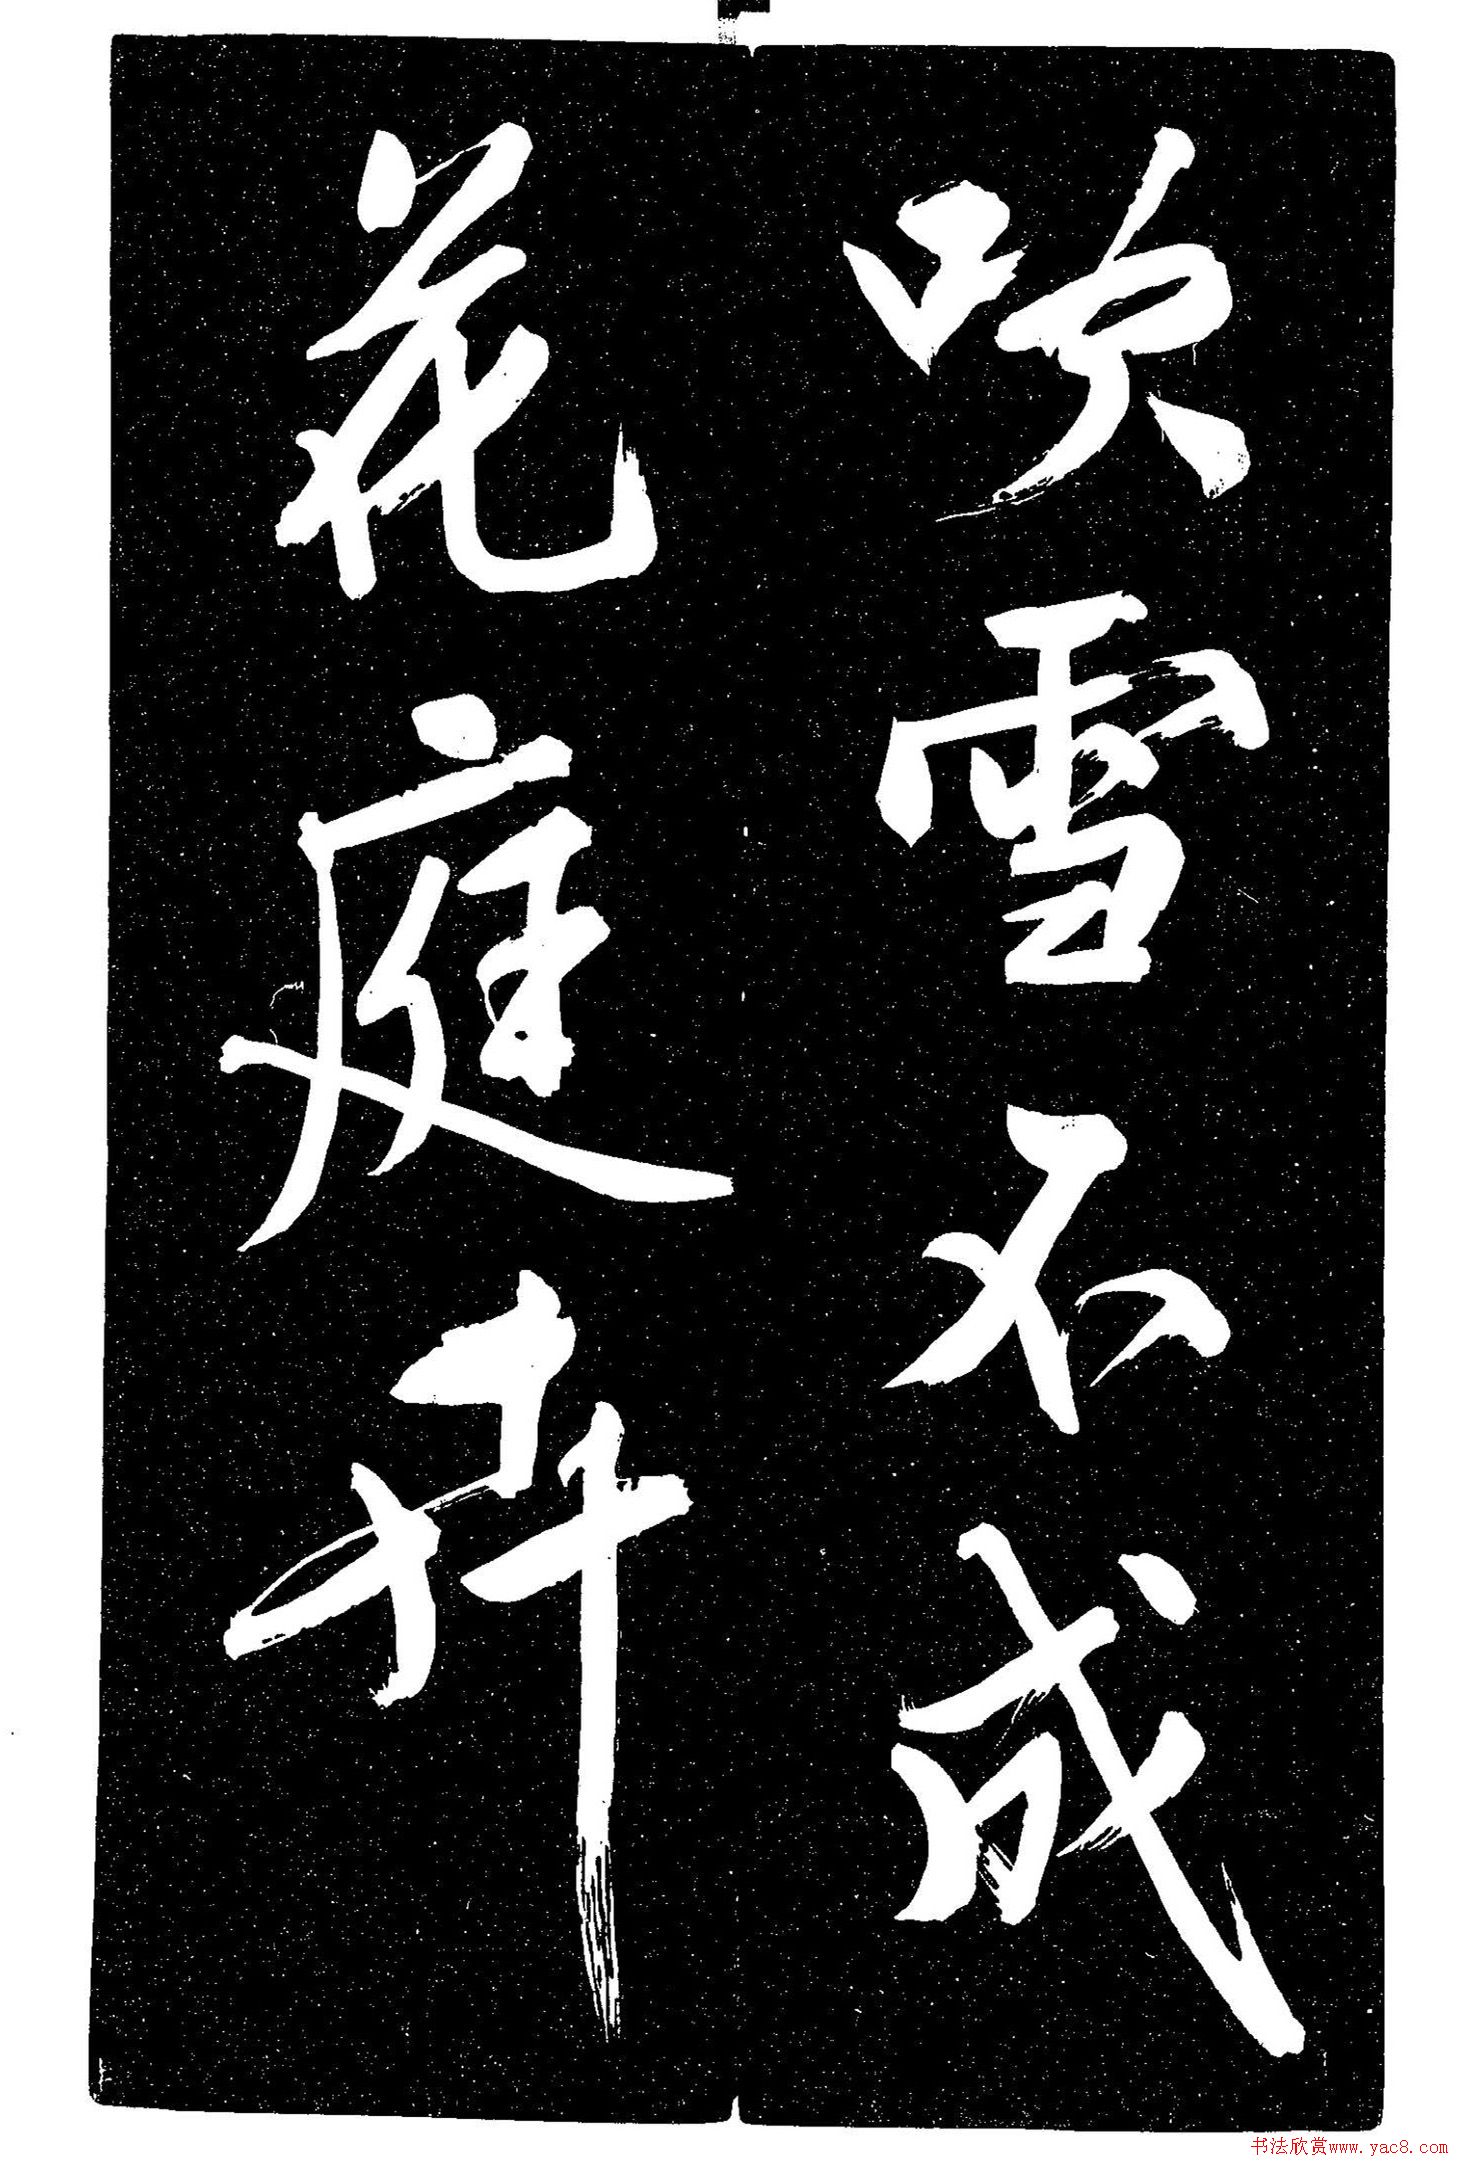 吹雪不成
花庭卉
书法欣赏www.yac8.com